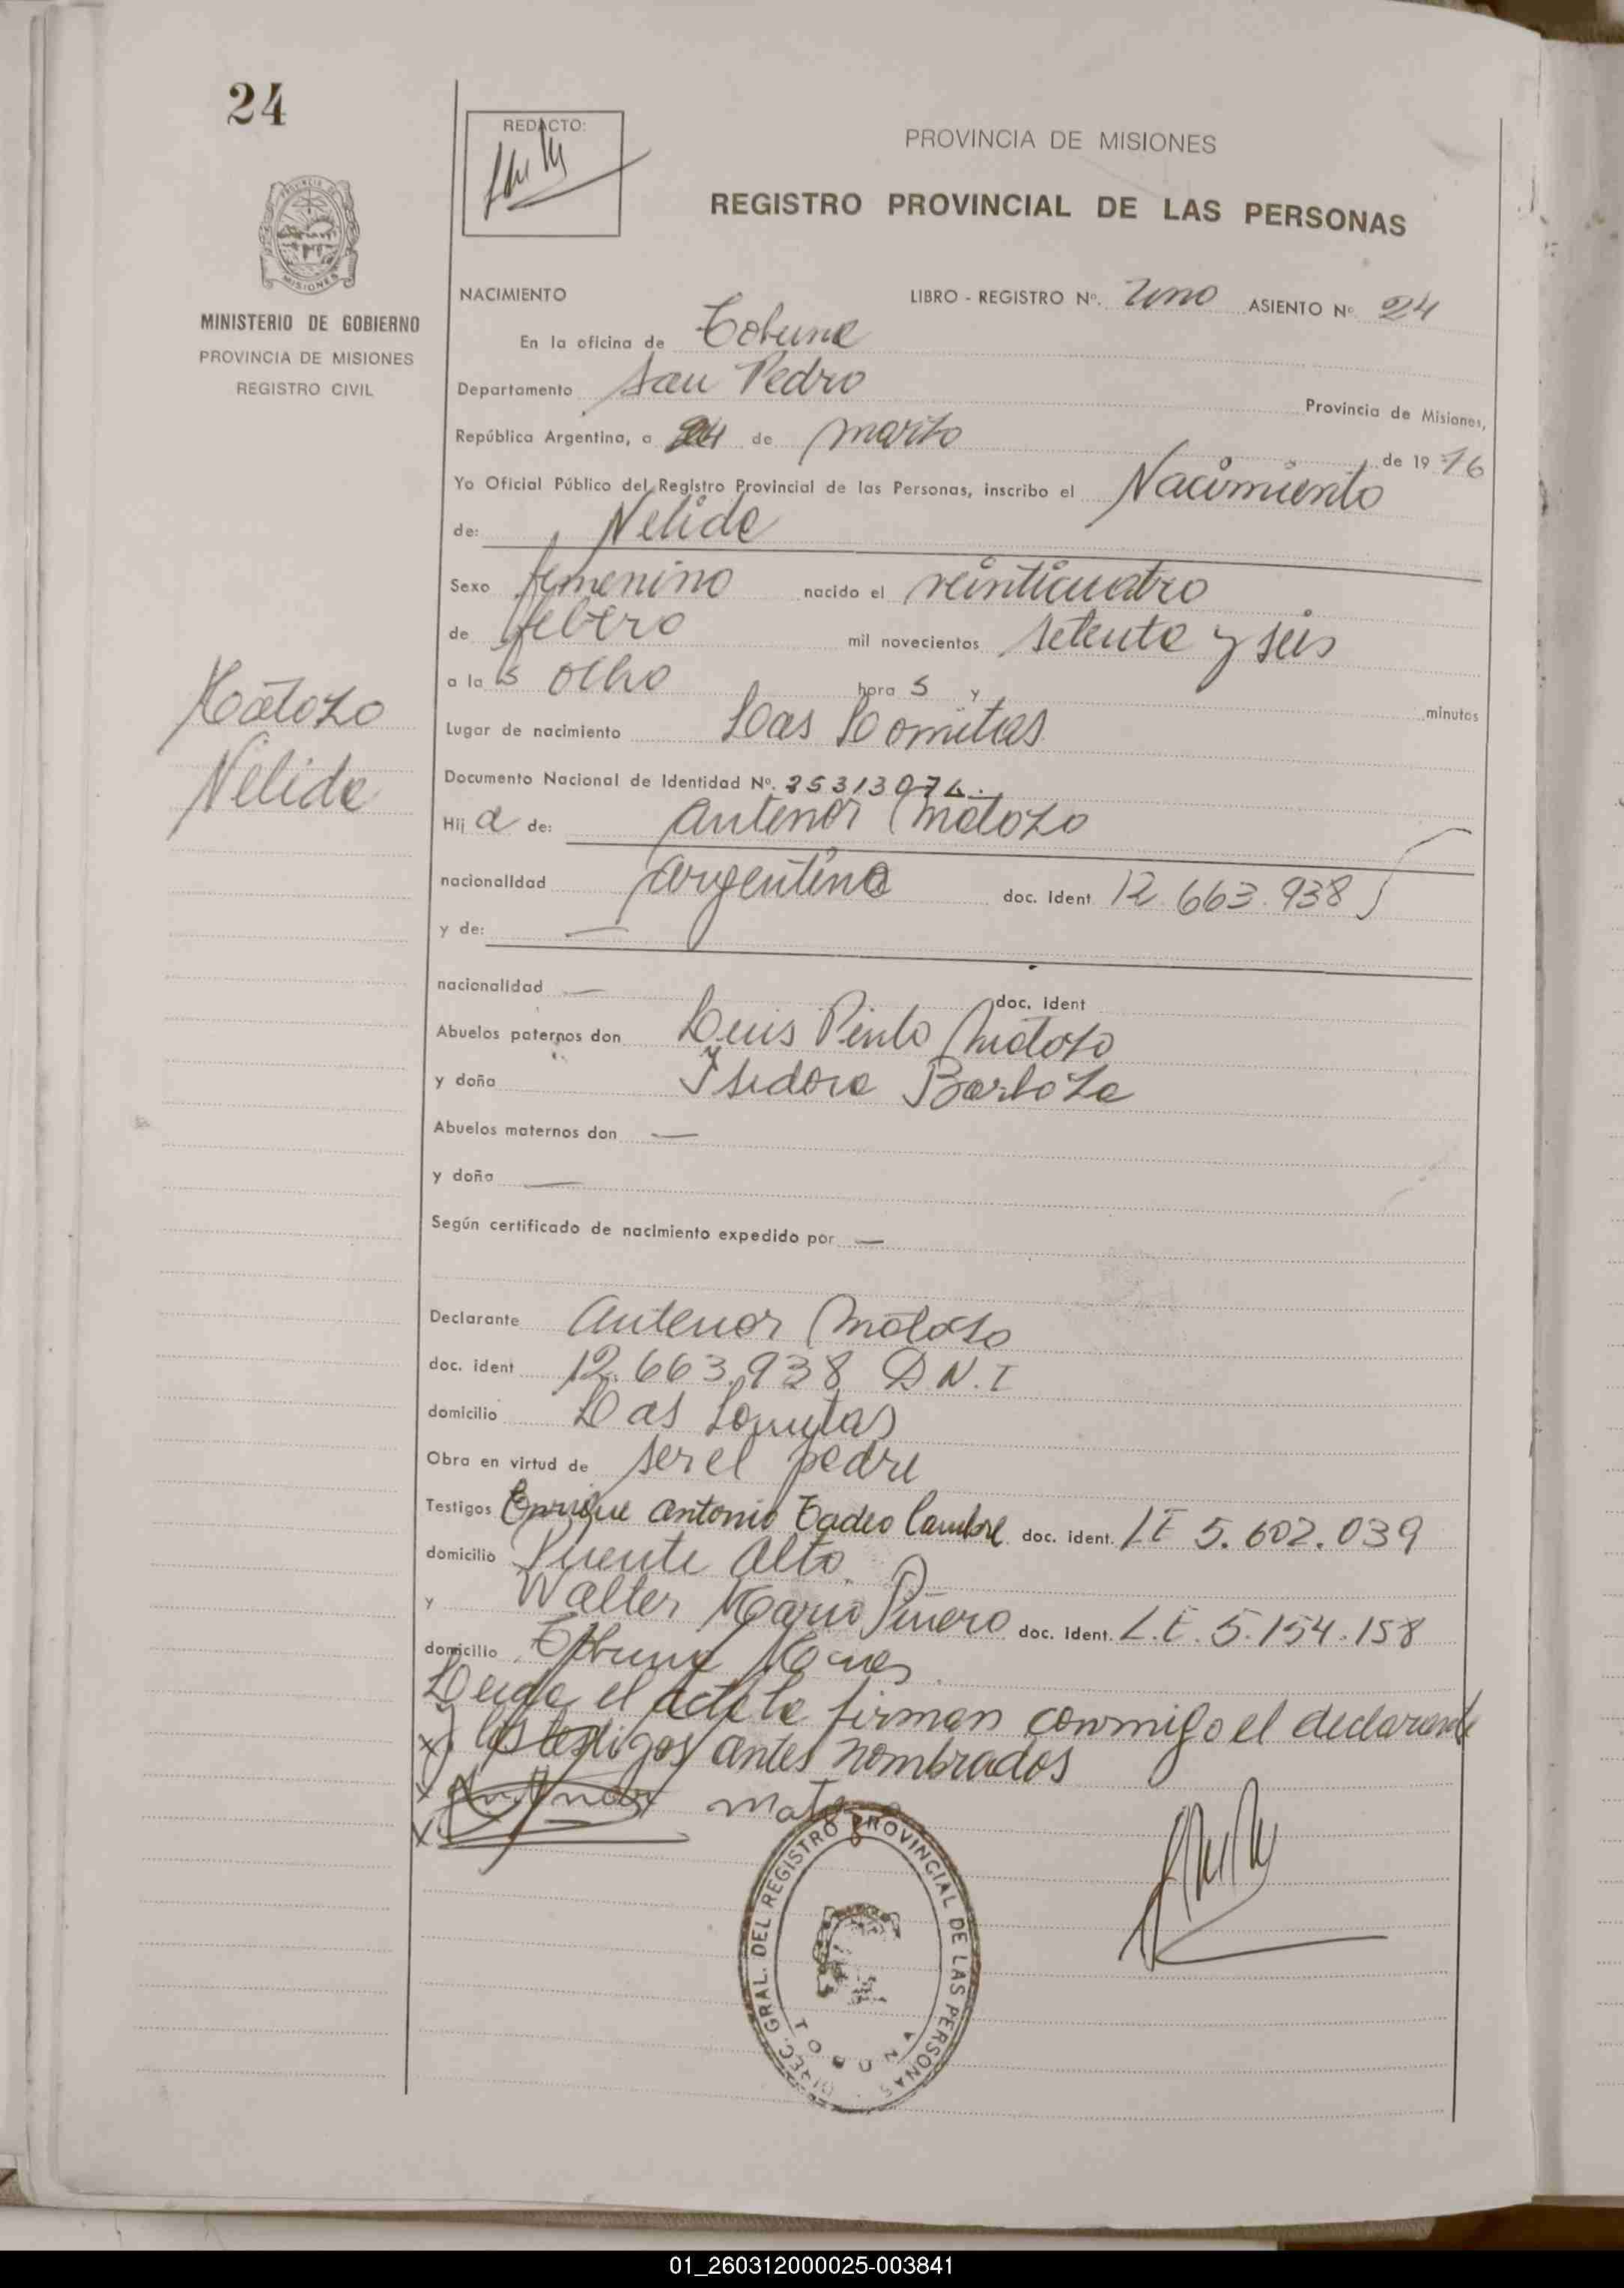 24
REDACTO:
PROVINCIA DE MISIONES
REGISTRO PROVINCIAL DE LAS PERSONAS
MISIONES
MINISTERIO DE GOBIERNO
PROVINCIA DE MISIONES
REGISTRO CIVIL
NACIMIENTO LIBRO - REGISTRO Nº. Uno ASIENTO Nº 24
En la oficina de Tobuna
Departamento San Pedro Provincia de Misiones,
República Argentina, a 24 de marzo de 19 76
Yo Oficial Público del Registro Provincial de las Personas, inscribo el Nacimiento
de: Nelida
Sexo femenino nacido el veinticuatro
de febrero mil novecientos setenta y seis
a la s ocho hora s y minutos
Matozo
Nelida
Lugar de nacimiento Las Lomitas
Documento Nacional de Identidad Nº. 25313074.
Hij a de: Antenor Matozo
nacionalidad argentina doc. Ident. 12.663.938
y de: —
nacionalidad — doc. ident
Abuelos paternos don Luis Pinto Matozo
y doña Isidora Barboza
Abuelos maternos don —
y doña —
Según certificado de nacimiento expedido por —
Declarante Antenor Matozo
doc. ident 12.663.938 D.N.I
domicilio Las Lomitas
Obra en virtud de ser el padre
Testigos Enrique Antonio Tadeo doc. ident. LE 5.602.039
domicilio Puente Alto.
y Walter Mario Piñero doc. Ident. L.E. 5.154.158
domicilio Tobuna Mnes.
Leida el acta la firman conmigo el declarante
y los testigos antes nombrados
Antenor mato
DIREC. GRAL. DEL REGISTRO PROVINCIAL DE LAS PERSONAS
TOBUNA
01_260312000025-003841